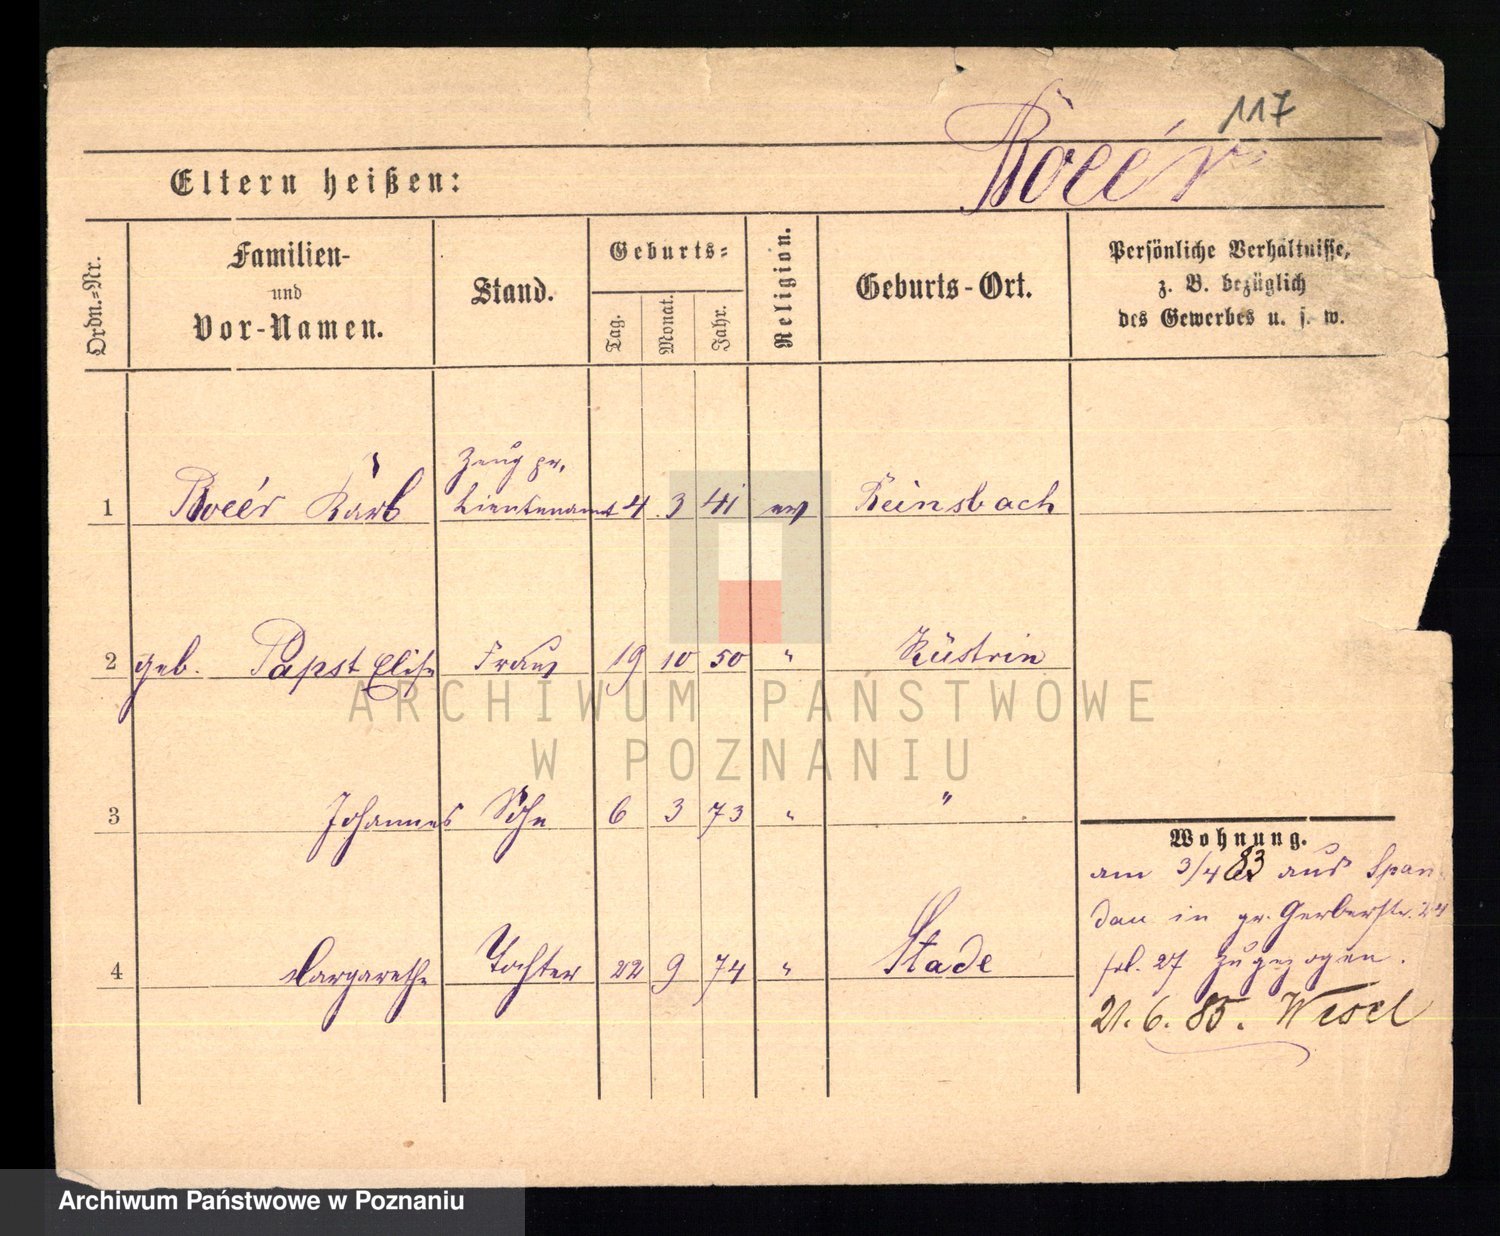 117
Eltern heißen: Boeér
Ordn.=Nr.
Familien-
und
Vor-Namen.
Stand.
Geburts=
Tag.
Monat.
Jahr.
Religion.
Geburts-Ort.
Persönliche Verhältnisse,
z. B. bezüglich
des Gewerbes u. s. w.
Zeug pr.
1 Boeér Karl Lieutenant 4 3 41 ev Reinsbach
2 geb. Papst Elise Frau 19 10 50 " Küstrin
ARCHIWUM PAŃSTWOWE
W POZNANIU
3 Johannes Sohn 6 3 73 " "
4 Margarethe Tochter 22 9 74 " Stade
Wohnung.
am 3/4 83 aus Span
dau in gr. Gerberstr. 24
fol. 27 zugezogen.
21. 6. 85. Wesel
Archiwum Państwowe w Poznaniu